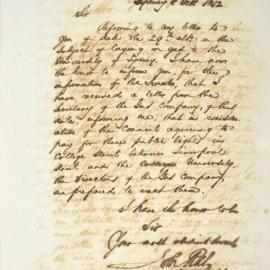 Sydney 8 Oct 1852
Sir
Referring to my letter to
you of date the 29th ult. on the
subject of laying on gas to the
University of Sydney, I have now
the honor to inform you for the
information of the Senate, that I
have received a letter from the
Secretary of the Gas Company, of this
date informing me, that in consider-
ation of the Council agreeing to
pay for three public lights in
College Street between Liverpool
Street and the College University,
the Directors of the Gas Company,
are prepared to erect them.
I have the honor to be
Sir
Your most obedient Servant
John